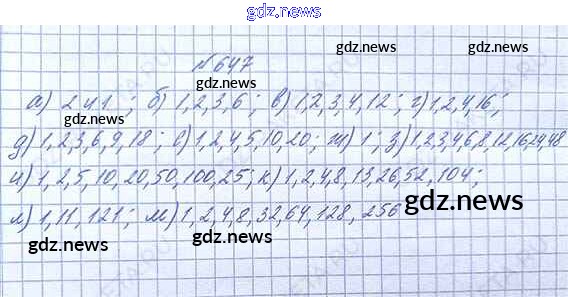 gdz.news
№647
gdz.news
gdz.news
gdz.news
а) 2 и 1 ; б) 1,2,3,6 ; в) 1,2,3,4,12 ; г) 1,2,4,16;
д) 1,2,3,6,9,18 ; е) 1,2,4,5,10,20; ж) 1 ; з) 1,2,3,4,6,8,12,16,24,48
и) 1,2,5,10,20,50,100,25; к) 1,2,4,8,13,26,52,104;
л) 1,11,121; м) 1,2,4,8,32,64,128,256
gdz.news
gdz.news
gdz.news